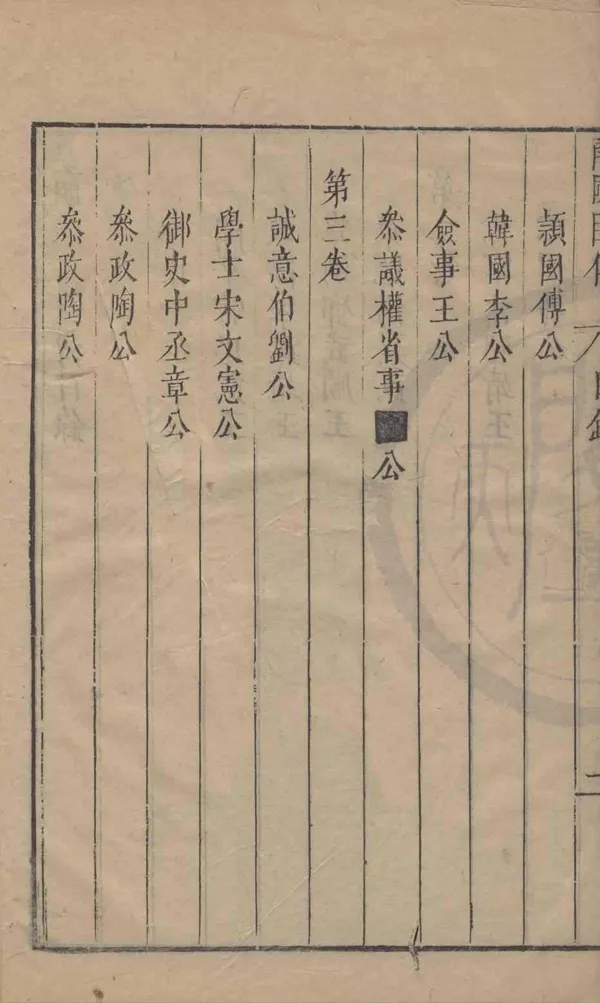 開國臣傳 目錄 二
潁國傅公
韓國李公
僉事王公
叅議權省事■公
第三卷
誠意伯劉公
學士宋文憲公
御史中丞章公
叅政陶公
叅政陶公